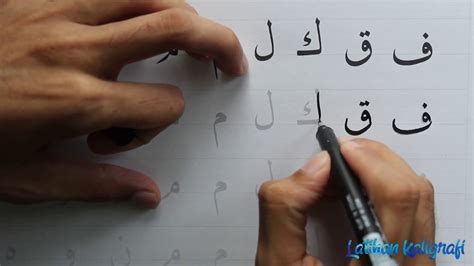 ف ق ك ل م م
ف ق ك ل م
ل م م
م م ن و
Latihan Kaligrafi